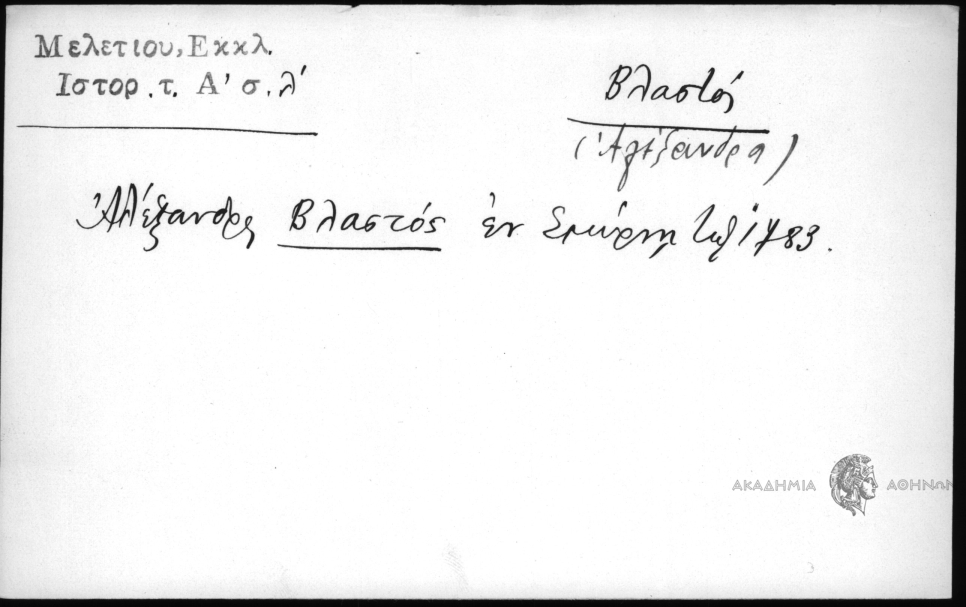 Μελετιου, Εκκλ.
Ιστορ. τ. Α' σ. λ'
Βλαστός
(Ἀλεξανδρα)
Ἀλέξανδρς Βλαστός ἐν Σμύρνῃ τῷ 1783.
ΑΚΑΔΗΜΙΑ ΑΘΗΝΩΝ